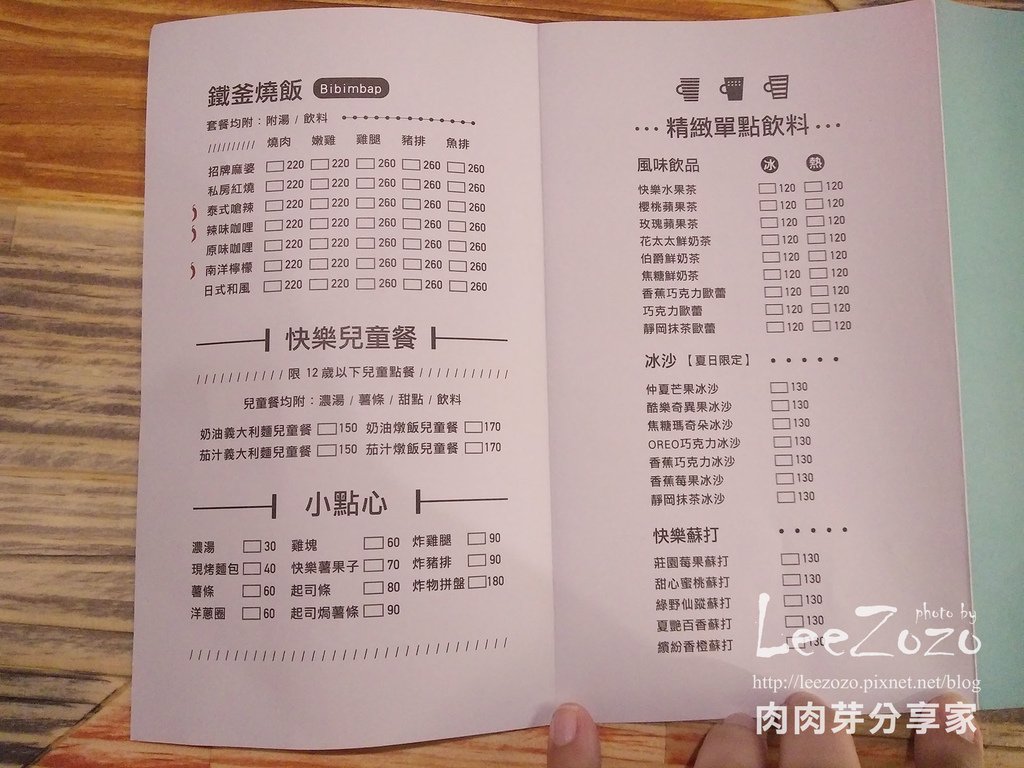 鐵釜燒飯 Bibimbap
套餐均附：附湯 / 飲料
燒肉 嫩雞 雞腿 豬排 魚排
招牌麻婆 220 220 260 260 260
私房紅燒 220 220 260 260 260
泰式嗆辣 220 220 260 260 260
辣味咖哩 220 220 260 260 260
原味咖哩 220 220 260 260 260
南洋檸檬 220 220 260 260 260
日式和風 220 220 260 260 260
快樂兒童餐
限 12 歲以下兒童點餐
兒童餐均附：濃湯 / 薯條 / 甜點 / 飲料
奶油義大利麵兒童餐 150 奶油燉飯兒童餐 170
茄汁義大利麵兒童餐 150 茄汁燉飯兒童餐 170
小點心
濃湯 30 雞塊 60 炸雞腿 90
現烤麵包 40 快樂薯果子 70 炸豬排 90
薯條 60 起司條 80 炸物拼盤 180
洋蔥圈 60 起司焗薯條 90
精緻單點飲料
風味飲品 冰 熱
快樂水果茶 120 120
櫻桃蘋果茶 120 120
玫瑰蘋果茶 120 120
花太太鮮奶茶 120 120
伯爵鮮奶茶 120 120
焦糖鮮奶茶 120 120
香蕉巧克力歐蕾 120 120
巧克力歐蕾 120 120
靜岡抹茶歐蕾 120 120
冰沙【夏日限定】
仲夏芒果冰沙 130
酷樂奇異果冰沙 130
焦糖瑪奇朵冰沙 130
OREO巧克力冰沙 130
香蕉巧克力冰沙 130
香蕉莓果冰沙 130
靜岡抹茶冰沙 130
快樂蘇打
莊園莓果蘇打 130
甜心蜜桃蘇打 130
綠野仙蹤蘇打 130
夏艷百香蘇打 130
繽紛香橙蘇打 130
photo by
LeeZozo
http://leezozo.pixnet.net/blog
肉肉芽分享家